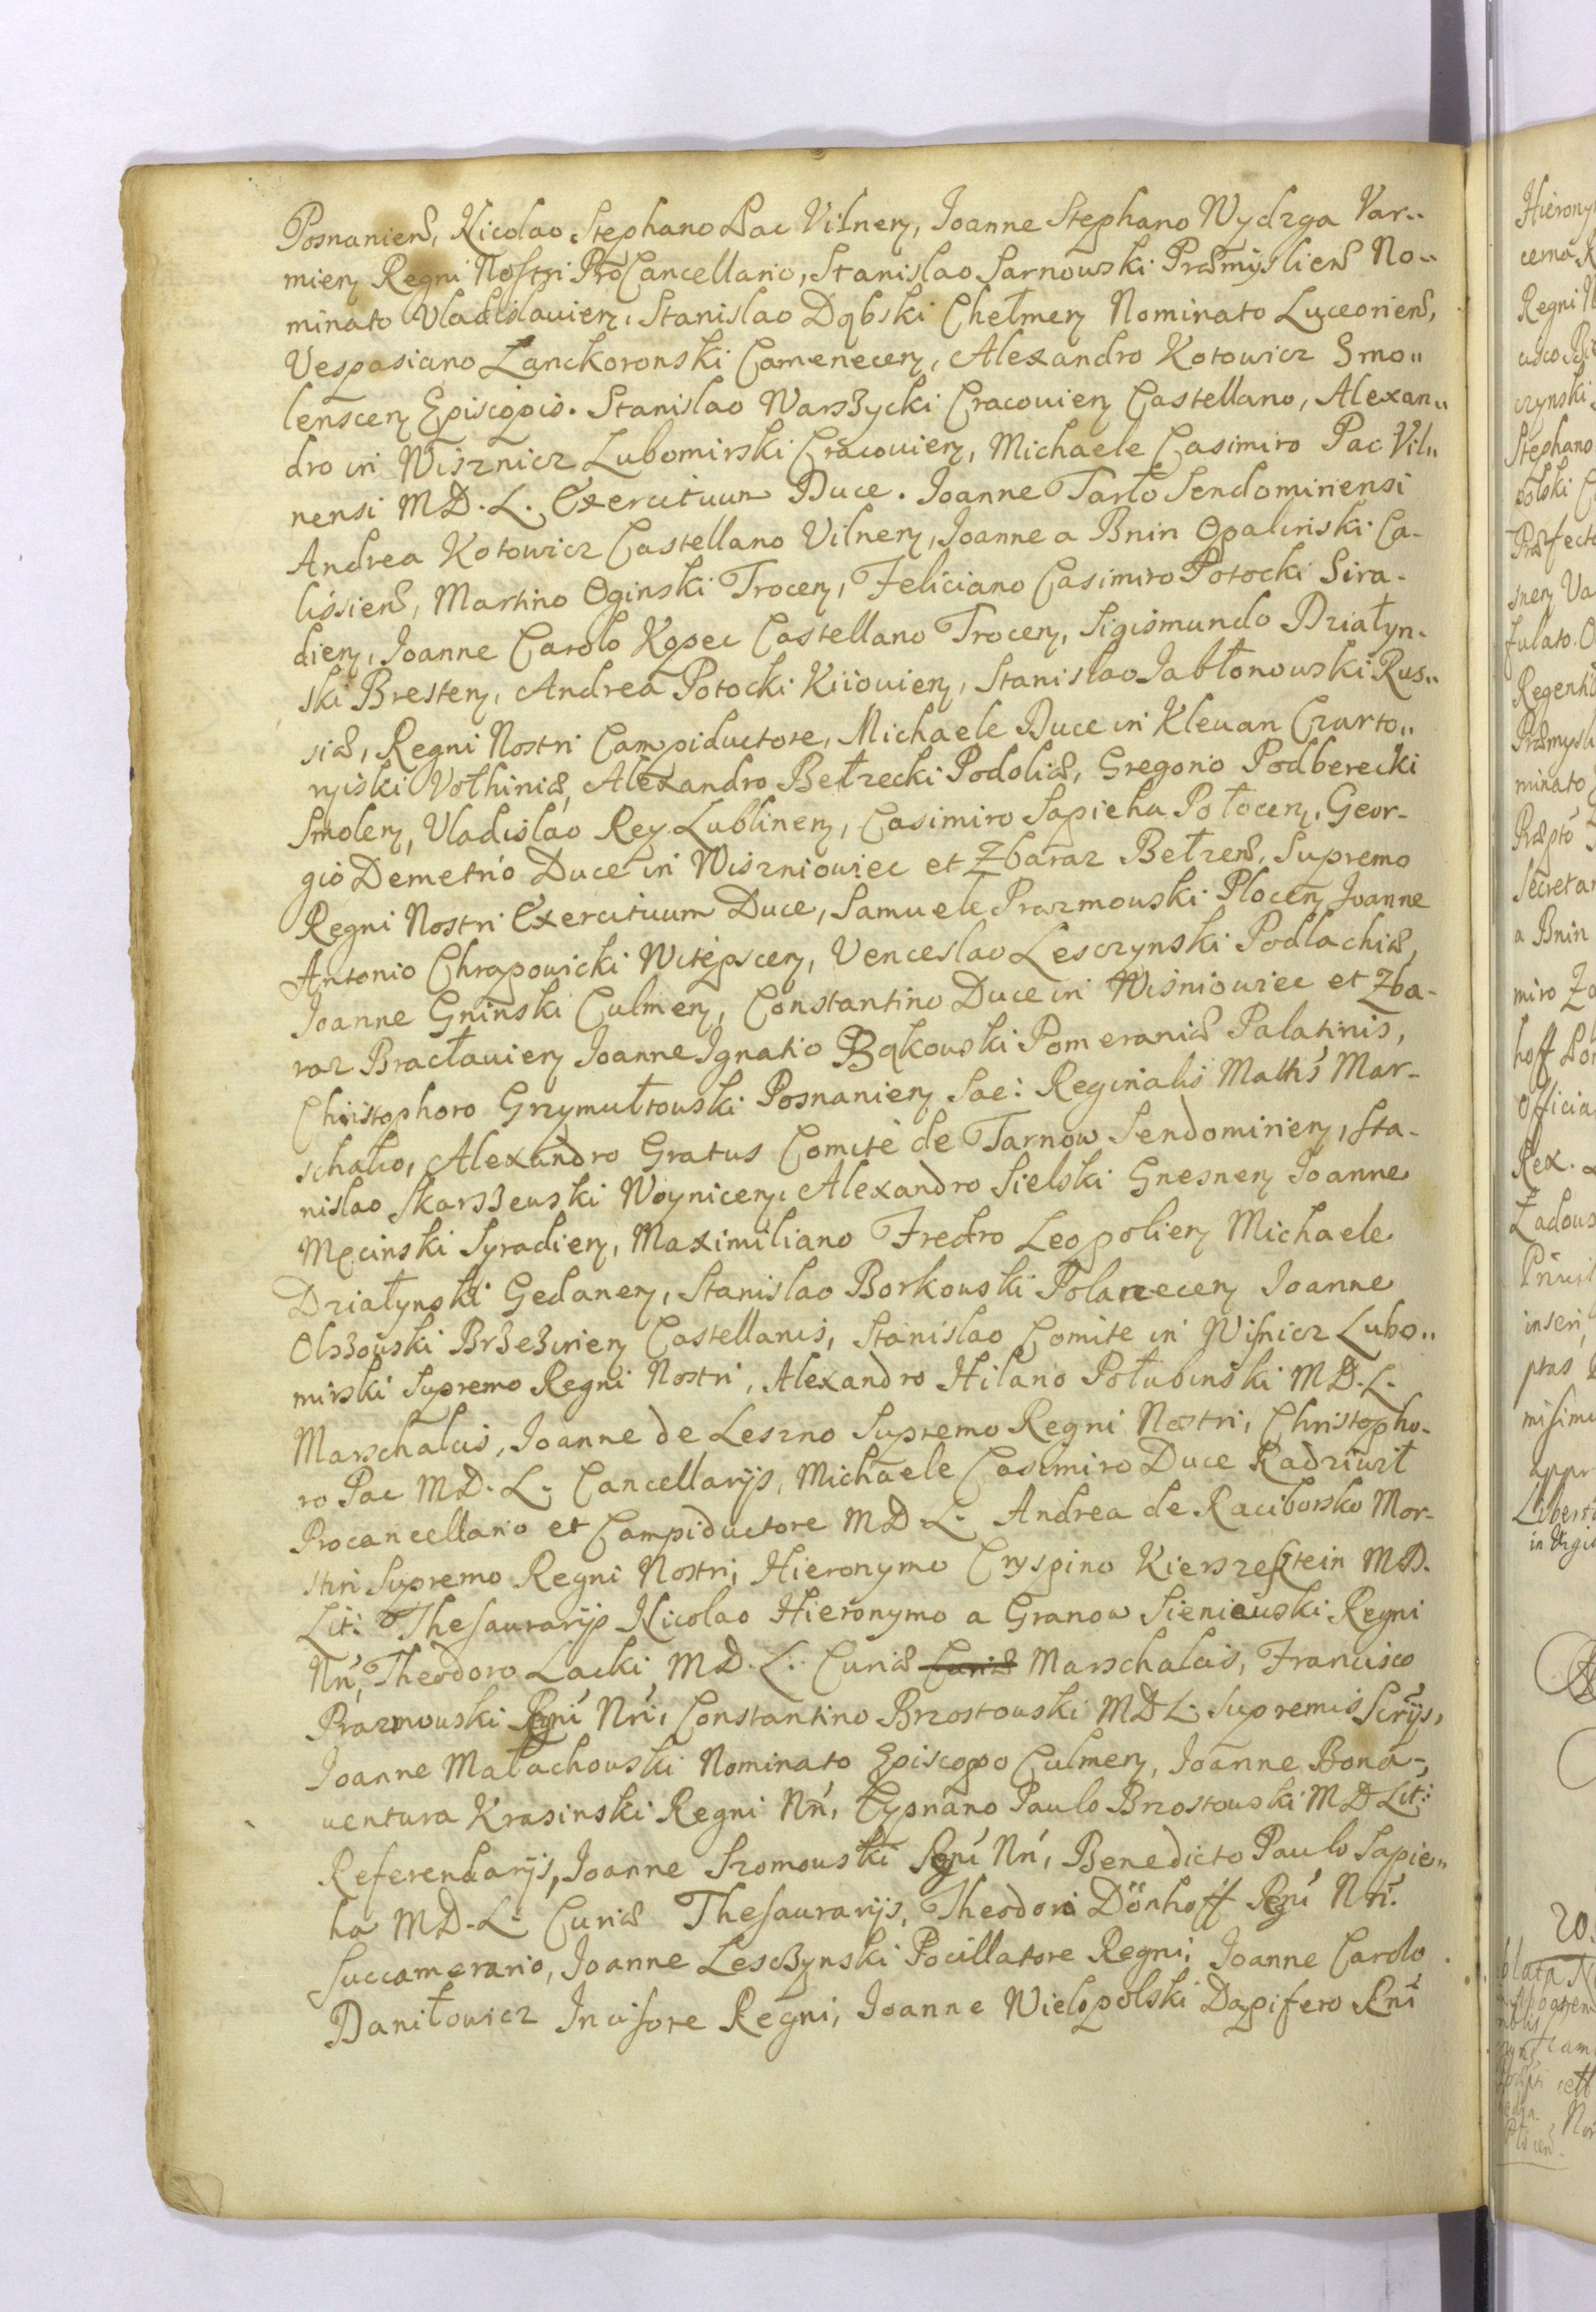 Posnanien, Nicolao Stephano Pac Vilnen, Joanne Stephano Wydzga Var-
mien Regni Nostri ProCancellario, Stanislao Sarnowski Præmyslien No-
minato Vladislavien, Stanislao Dąbski Chełmen Nominato Luceorien,
Vespasiano Lanckoronski Camenecen, Alexandro Kotowicz Smo-
lenscen Episcopis. Stanislao Warszycki Cracovien Castellano, Alexan-
dro in Wisznicz Lubomirski Cracovien, Michaele Casimiro Pac Vil-
nensi M.D.L. Exercituum Duce. Joanne Tarło Sendomiriensi
Andrea Kotowicz Castellano Vilnen, Joanne a Bnin Opalinski Ca-
lissien, Martino Oginski Trocen, Feliciano Casimiro Potocki Sira-
dien, Joanne Carolo Kopec Castellano Trocen, Sigismundo Działyn-
ski Bresten, Andrea Potocki Kiiovien, Stanislao Jabłonowski Rus-
siæ, Regni Nostri Campiductore, Michaele Duce in Klevan Czarto-
ryiski Vołhiniæ, Alexandro Bełzecki Podoliæ, Gregorio Podberecki
Smolen, Vladislao Rey Lublinen, Casimiro Sapieha Połocen, Geor-
gio Demetrio Duce in Wiszniowiec et Zbaraz Bełzen, Supremo
Regni Nostri Exercituum Duce, Samuele Prazmowski Plocen, Joanne
Antonio Chrapowicki Witepscen, Venceslao Lesczynski Podlachiæ,
Joanne Gninski Culmen, Constantino Duce in Wisniowiec et Zba-
raz Bracłavien Joanne Ignatio Bąkowski Pomeraniæ Palatinis,
Christophoro Grzymułtowski Posnanien Sae: Reginalis Mattis Mar-
schalco, Alexandro Gratus Comite de Tarnow Sendomirien, Sta-
nislao Skarszewski Woynicen, Alexandro Sielski Gnesnen Joanne
Męcinski Syradien, Maximiliano Fredro Leopolien Michaele
Działynski Gedanen, Stanislao Borkowski Polanecen Joanne
Olszowski Brzezinen Castellanis, Stanislao Comite in Wisnicz Lubo-
mirski Supremo Regni Nostri, Alexandro Hilario Połubinski M.D.L.
Marschalcis, Joanne de Leszno Supremo Regni Nostri, Christopho-
ro Pac M.D.L. Cancellarijs, Michaele Casimiro Duce Radziwił
Procancellario et Campiductore M.D.L. Andrea de Raciborsko Mor-
stin Supremo Regni Nostri, Hieronymo Cryspino Kierszestein M.D.
Lit: Thesaurarijs Nicolao Hieronymo a Granow Sieniawski Regni
Nri, Theodoro Lacki M.D.L. Curiæ Curiæ Marschalcis, Francisco
Prazmowski Rgni Nri, Constantino Brzostowski M.D.L. Supremis Scrijs,
Joanne Małachowski Nominato Episcopo Culmen, Joanne Bona-
ventura Krasinski Regni Nri, Cypriano Paulo Brzostowski M.D.Lit:
Referendarijs, Joanne Szomowski Rgni Nri, Benedicto Paulo Sapie-
ha M.D.L. Curiæ Thesaurarijs, Theodoro Dönhoff Rgni Nri.
Succamerario, Joanne Lesczynski Pocillatore Regni, Joanne Carolo
Daniłowicz Incisore Regni, Joanne Wielopolski Dapifero Rni